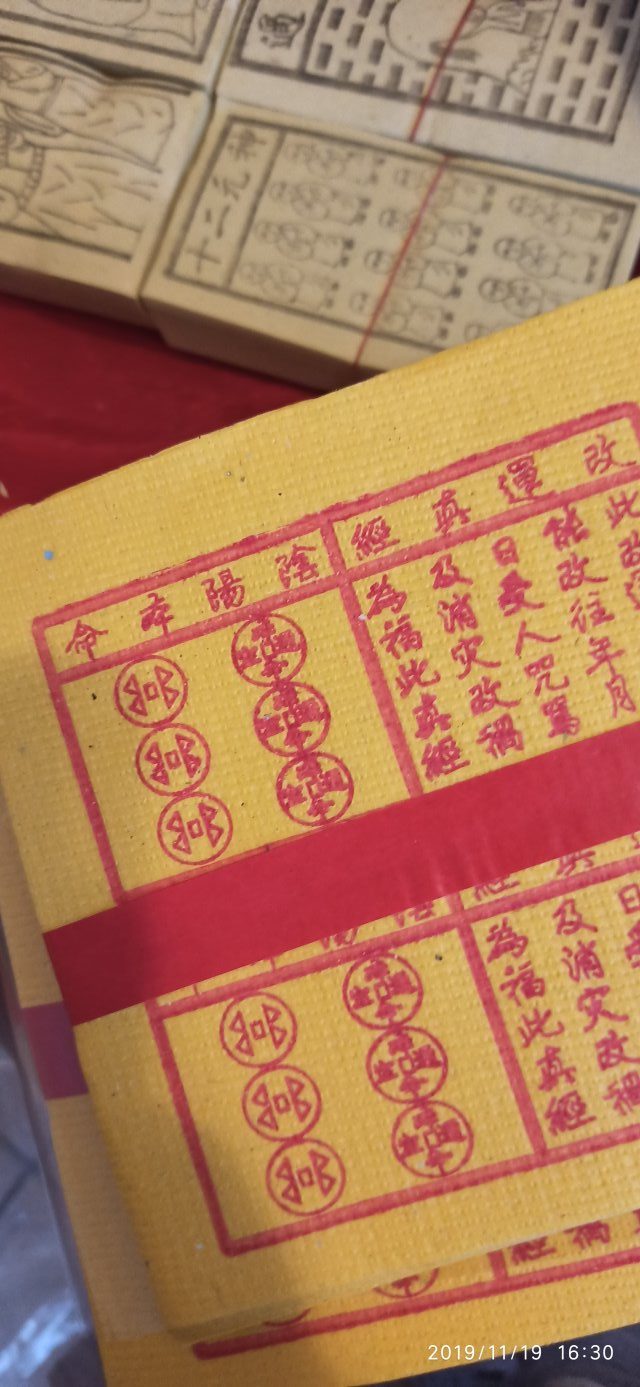 通
十二元神
改運真經
此改
能改往年月
日受人咒罵
及消灾改禍
為福此真經
陰陽夲命
日
及消灾改禍
為福此真經
2019/11/19 16:30